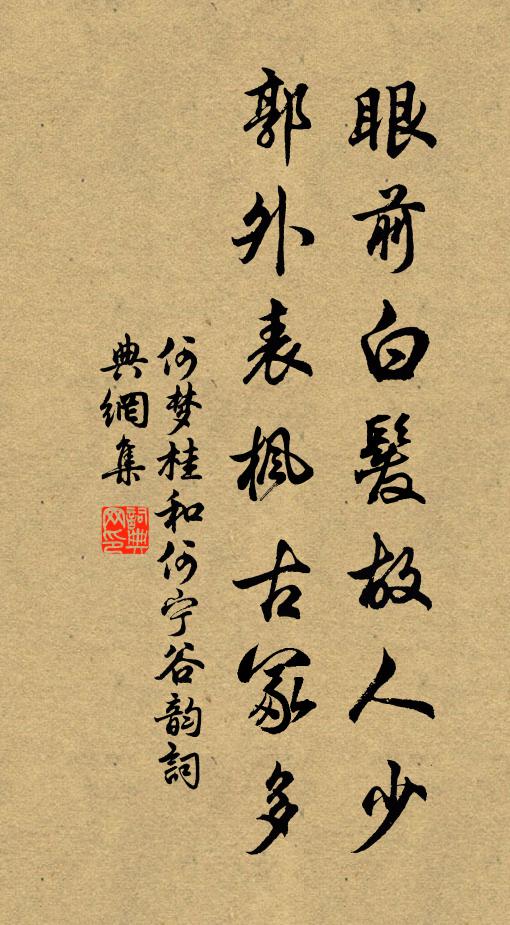 眼前白髮故人少
郭外表楓古冢多
何梦桂和何宁谷韵詞
典網集
詞典网印